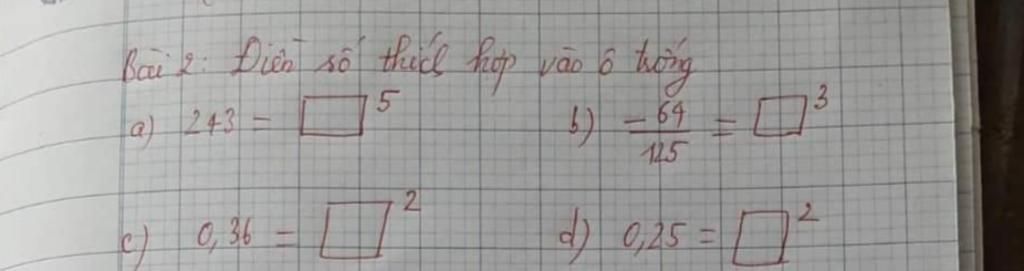 Bài 2: Điền số thích hợp vào ô trống
a) 243 = □⁵ b) -64/125 = □³
c) 0,36 = □² d) 0,25 = □²